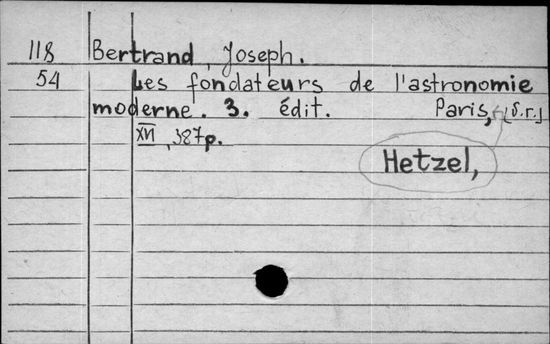 118 Bertrand, Joseph.
54 Les fondateurs de l'astronomie
moderne. 3. édit. Paris, [S.r.]
XVI, 387p.
Hetzel,